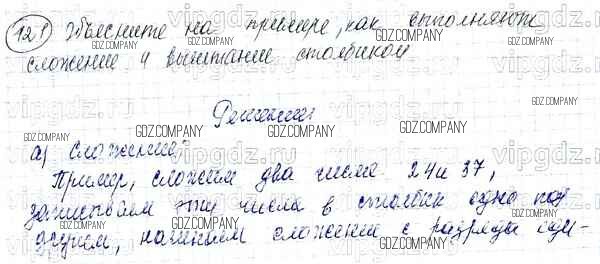 121 Объясните на примере, как выполняют
сложение и вычитание столбиком
Решение:
а) Сложение:
Пример, сложим два числа 24 и 37,
записываем эти числа в столбик одно под
другим, начинаем сложение с разряда еди-